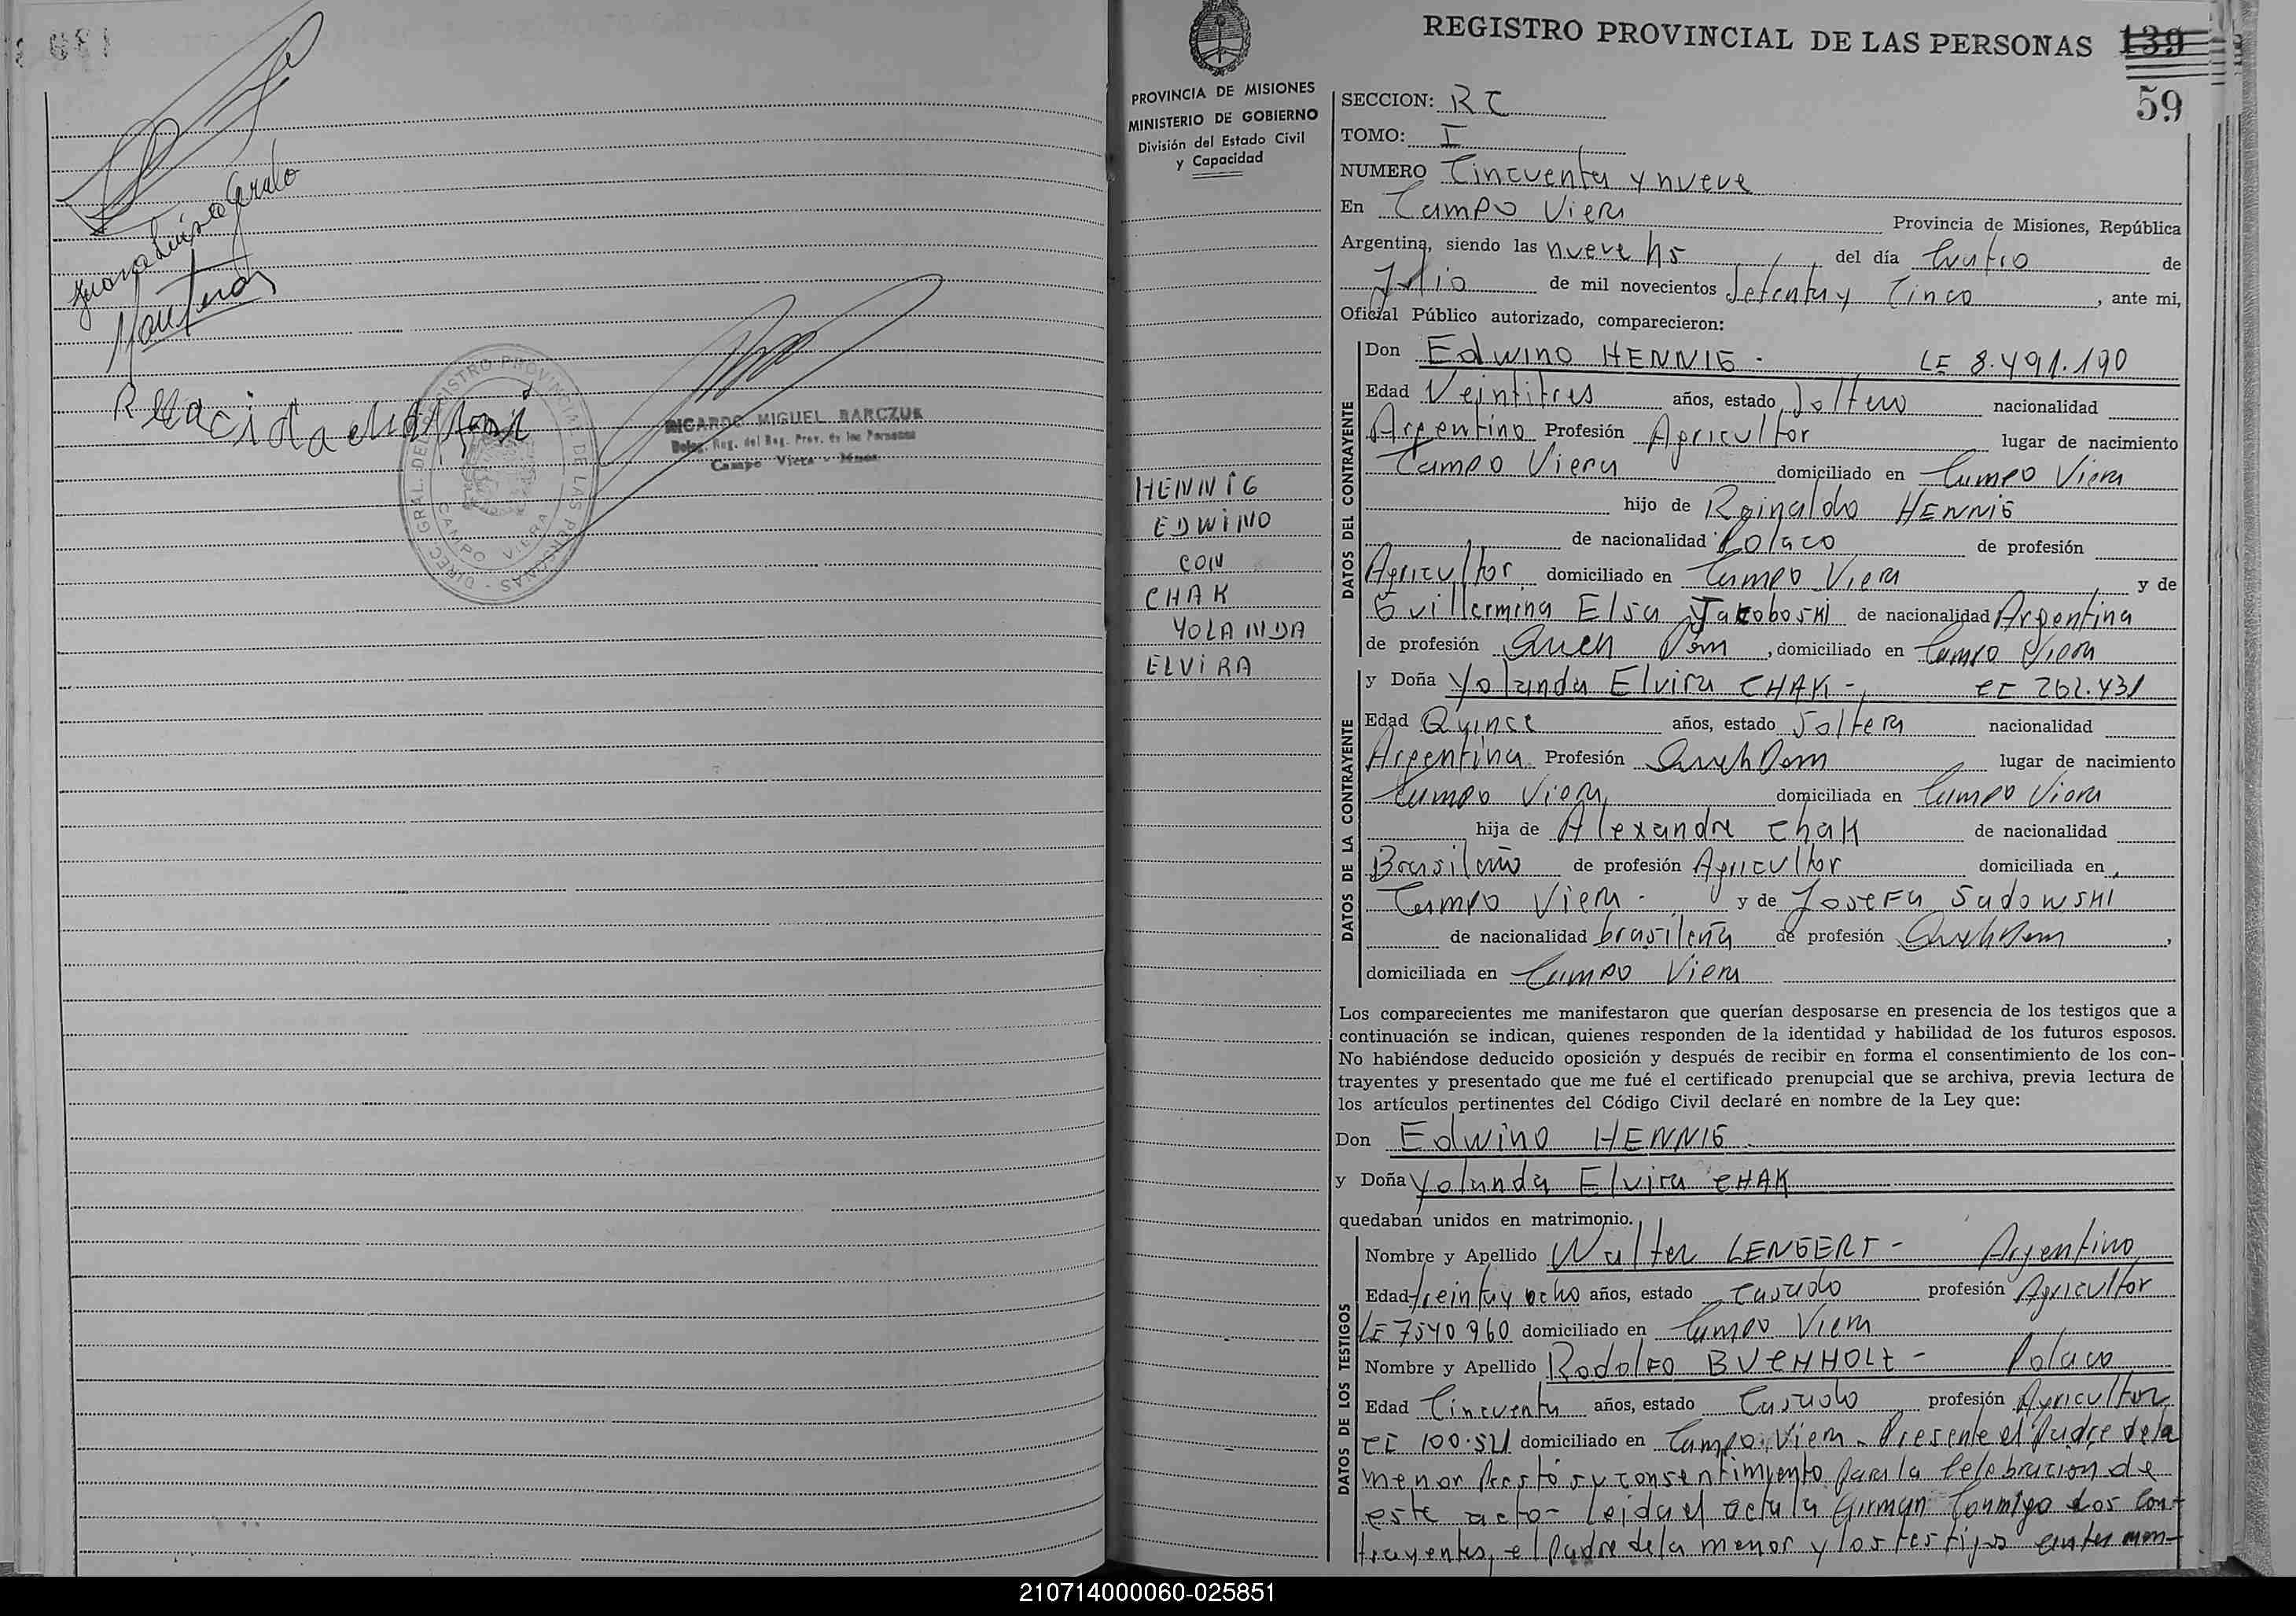 Juana Luisa
RICARDO MIGUEL BARCZUK
Deleg. Reg. del Reg. Prov. de las Personas
Campo Viera - Mnes.
DIREC. GRAL. DEL REGISTRO PROVINCIAL DE LAS PERSONAS
CAMPO VIERA
REGISTRO PROVINCIAL DE LAS PERSONAS 139
59
PROVINCIA DE MISIONES
MINISTERIO DE GOBIERNO
División del Estado Civil
y Capacidad
HENNIG
EDWINO
CON
CHAK
YOLANDA
ELVIRA
SECCION: RC
TOMO: I
NUMERO Cincuenta y nueve
En Campo Viera Provincia de Misiones, República
Argentina, siendo las nueve hs del día Cuatro de
Julio de mil novecientos Setenta y Cinco, ante mi,
Oficial Público autorizado, comparecieron:
DATOS DEL CONTRAYENTE
Don Edwino HENNIG - LE 8.491.190
Edad Veintitres años, estado Soltero nacionalidad
Argentino Profesión Agricultor lugar de nacimiento
Campo Viera domiciliado en Campo Viera
hijo de Reinaldo HENNIG
de nacionalidad Polaco de profesión
Agricultor domiciliado en Campo Viera y de
Guillermina Elsa Jakoboski de nacionalidad Argentina
de profesión Queh Dom, domiciliado en Campo Viera
DATOS DE LA CONTRAYENTE
y Doña Yolanda Elvira CHAK - CI 262.431
Edad Quince años, estado Soltera nacionalidad
Argentina Profesión Queh Dom lugar de nacimiento
Campo Viera domiciliada en Campo Viera
hija de Alexandre Chak de nacionalidad
Brasileño de profesión Agricultor domiciliada en,
Campo Viera - y de Josefa Sadowski
de nacionalidad brasileña de profesión Queh Dom,
domiciliada en Campo Viera
Los comparecientes me manifestaron que querían desposarse en presencia de los testigos que a
continuación se indican, quienes responden de la identidad y habilidad de los futuros esposos.
No habiéndose deducido oposición y después de recibir en forma el consentimiento de los con-
trayentes y presentado que me fué el certificado prenupcial que se archiva, previa lectura de
los artículos pertinentes del Código Civil declaré en nombre de la Ley que:
Don Edwino HENNIG
y Doña Yolanda Elvira CHAK
quedaban unidos en matrimonio.
DATOS DE LOS TESTIGOS
Nombre y Apellido Walter LENGERT - Argentino
Edad treinta y ocho años, estado Casado profesión Agricultor
LE 7540960 domiciliado en Campo Viera
Nombre y Apellido Rodolfo BUCHHOLZ - Polaco
Edad Cincuenta años, estado Casado profesión Agricultor
CI 100.521 domiciliado en Campo Viera - Presente el Padre de la
menor Prestó su consentimiento para la Celebracion de
este acto - Leida el acta la firman Conmigo los Con-
trayentes, el Padre de la menor y los testigos antes men-
210714000060-025851